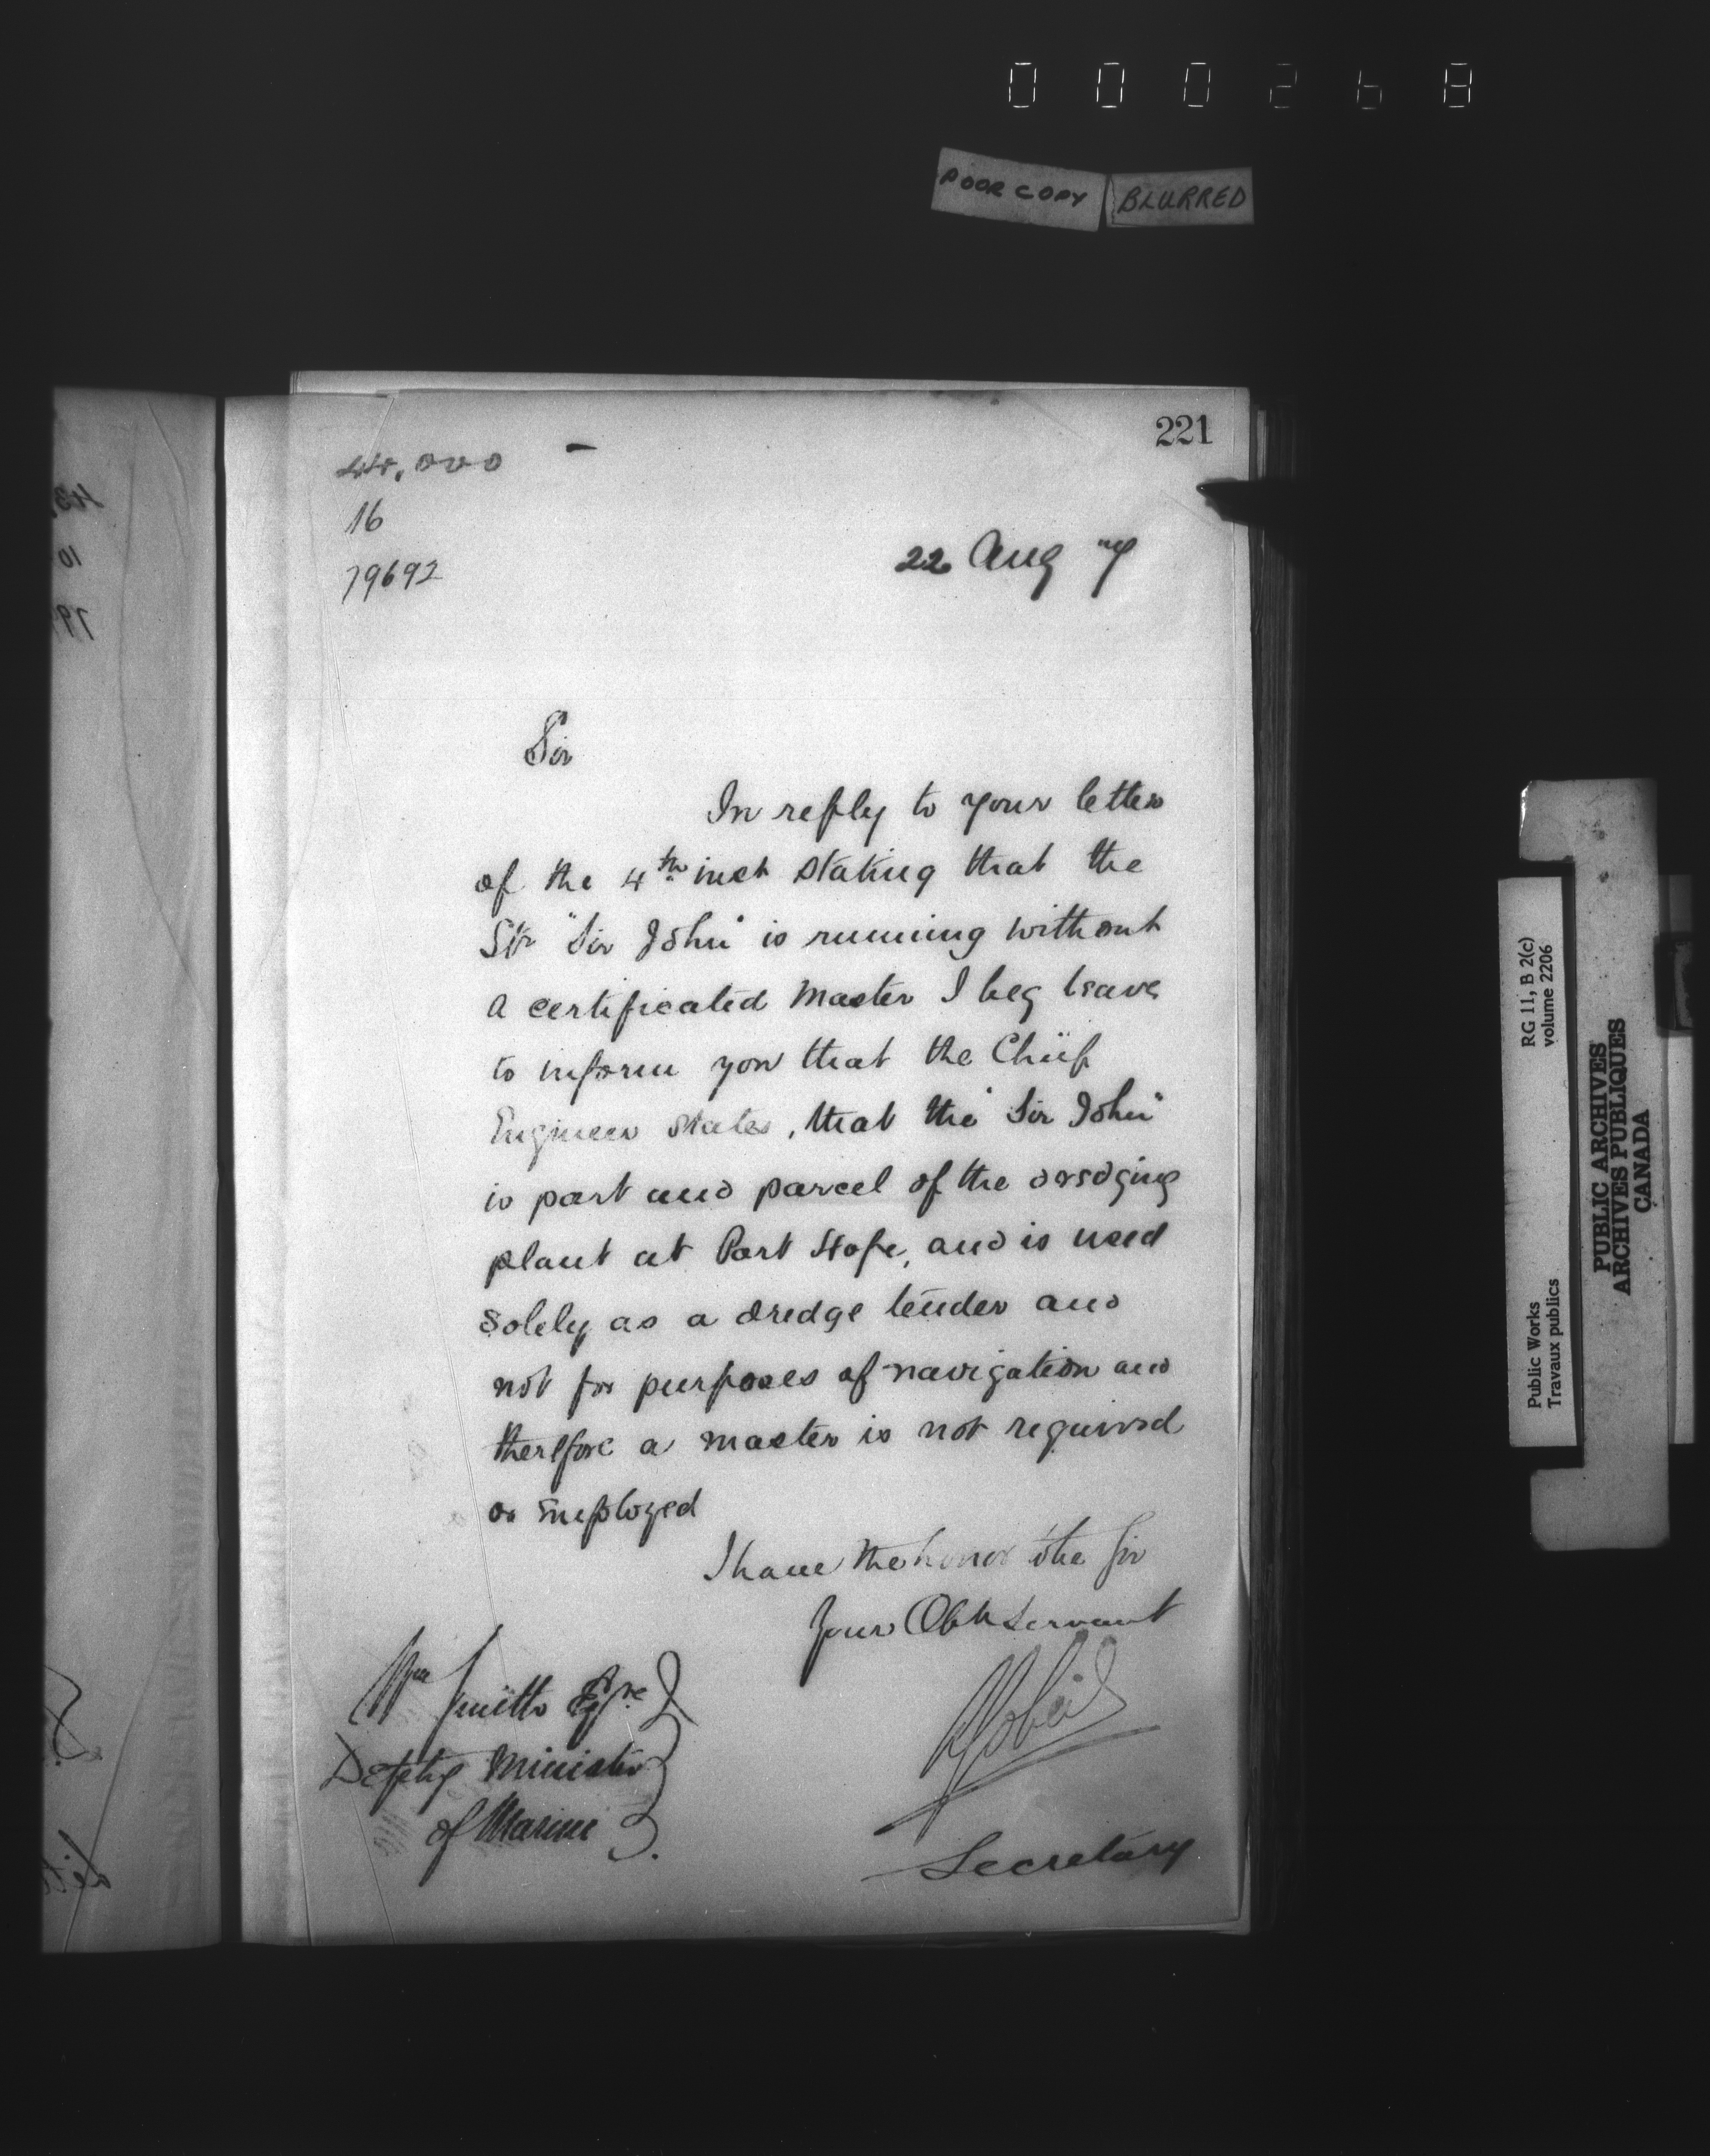 000268
POOR COPY BLURRED
221
44,000
16
79692
22 Aug
Sir
In reply to your letter
of the 4th inst stating that the
Str "Sir John" is running without
a certificated Master I beg leave
to inform you that the Chief
Engineer states, that the "Sir John"
is part and parcel of the dredging
plant at Port Hope, and is used
solely as a dredge tender and
not for purposes of navigation and
therefore a master is not required
or employed
I have the honor to be Sir
Your Obt Servant
Wm Smith Esqre
Deputy Minister
of Marine
Gobeil
Secretary
RG 11, B 2(c)
volume 2206
Public Works
Travaux publics
PUBLIC ARCHIVES
ARCHIVES PUBLIQUES
CANADA